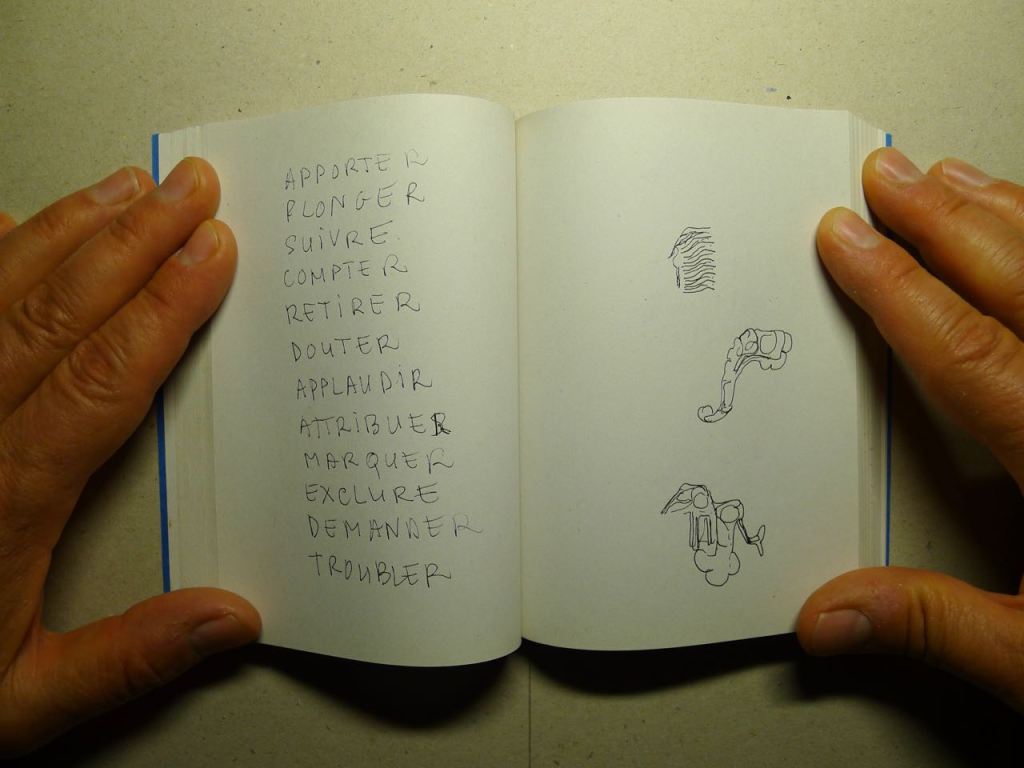 APPORTER
PLONGER
SUiVRE
COMPTER
RETiRER
DOUTER
APPLAUDiR
ATTRiBUER
MARQUER
EXCLURE
DEMANDER
TROUBLER